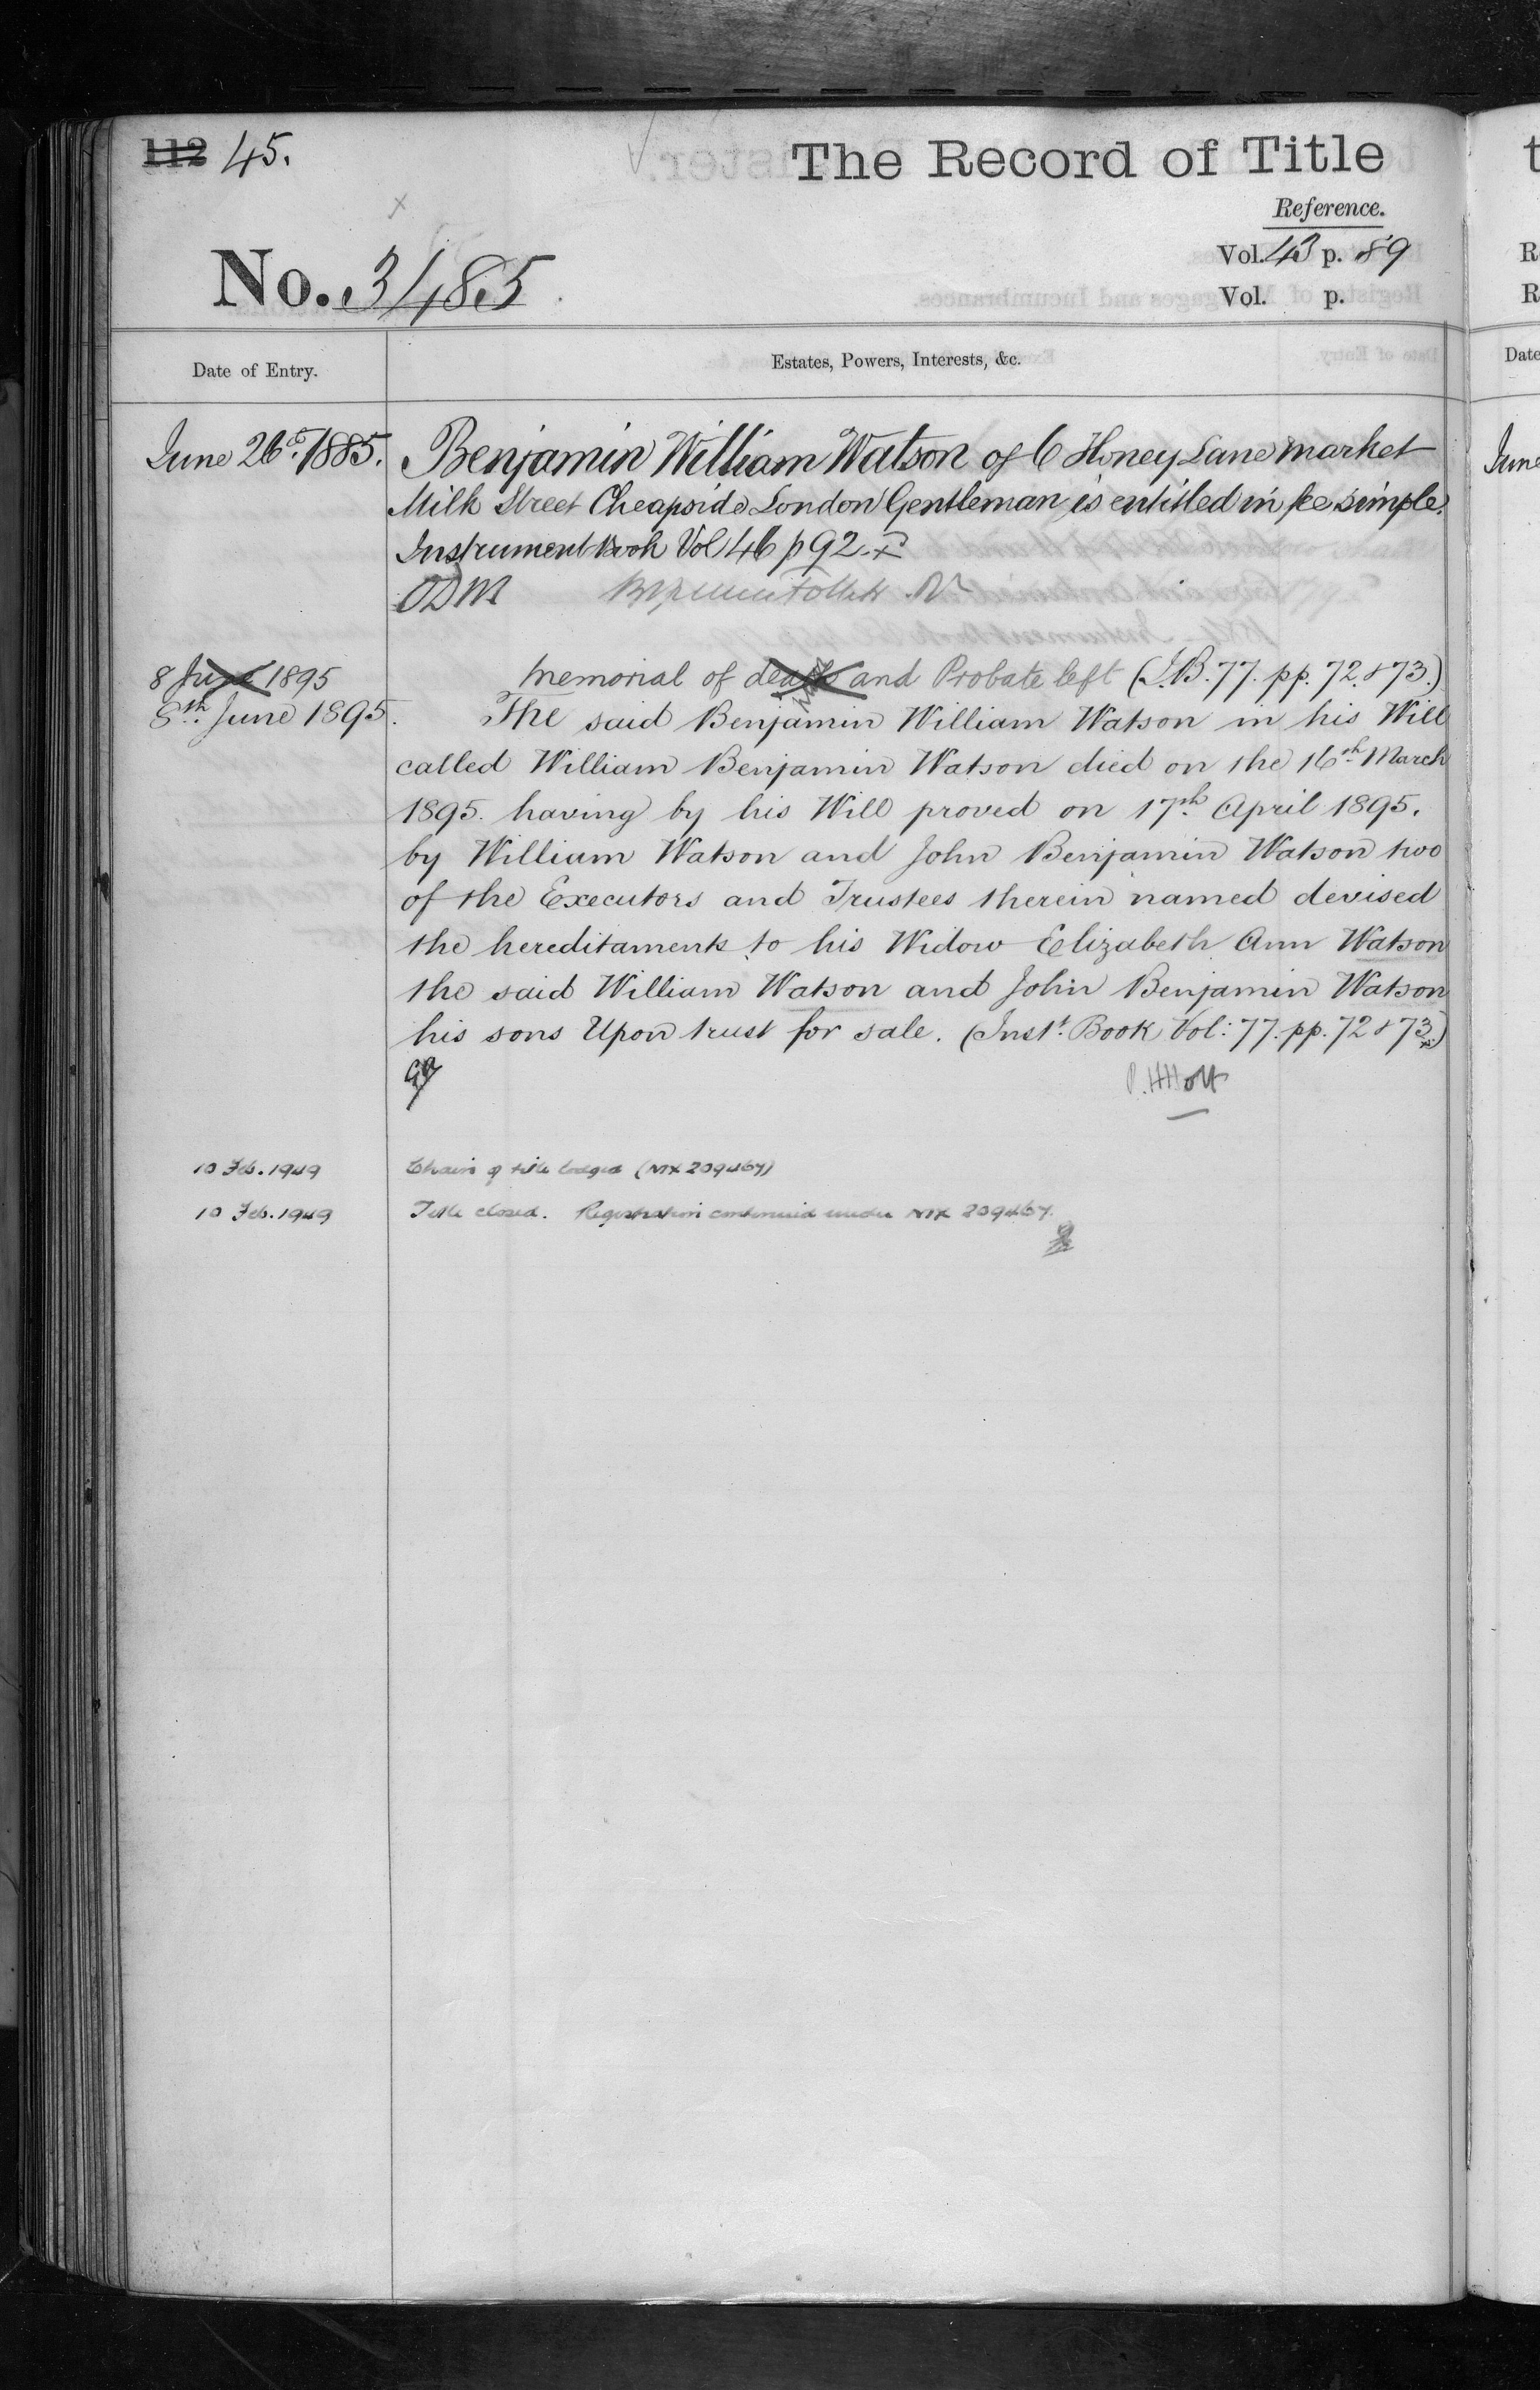 112 45.
The Record of Title
Reference.
Vol. 43 p. 89
No. 3485
Vol. p.
Date of Entry. Estates, Powers, Interests, &c.
June 26th 1885. Benjamin William Watson of 6 Honey Lane Market
Milk Street Cheapside London Gentleman is entitled in fee simple.
Instrument Book Vol 46 p 92.
ODM
8 June 1895 Memorial of death and Probate left (I.B. 77. pp. 72 & 73.)
8th June 1895. The said Benjamin William Watson in his Will
called William Benjamin Watson died on the 16th March
1895. having by his Will proved on 17th April 1895.
by William Watson and John Benjamin Watson two
of the Executors and Trustees therein named devised
the hereditaments to his Widow Elizabeth Ann Watson
the said William Watson and John Benjamin Watson
his sons Upon trust for sale. (Inst. Book Vol: 77. pp. 72 & 73.)
10 Feb. 1949 Chain of title lodged (MX 209467)
10 Feb. 1949 Title closed. Registration continued under MX 209467.
t
R
R
Date
June